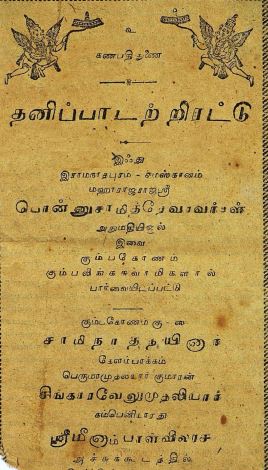 உ
கணபதி துணை
தனிப்பாடற் றிரட்டு
இஃது
இராமநாதபுரம் சமஸ்தானம்
மஹாராஜராஜஸ்ரீ
பொன்னுசாமித்தேவரவர்கள்
அனுமதியின்
இவை
கும்பகோணம்
கும்பலிங்கசுவாமிகளால்
பார்வையிடப்பட்டு
கும்பகோணம்
சாமிநாத
பெருமாமுதலியார் குமாரன்
சிங்காரவேலுமுதலியார்
கம்பெனியாரது
ஸ்ரீமீனாம்பாள்விலாச
அச்சுக்கூடத்தில்